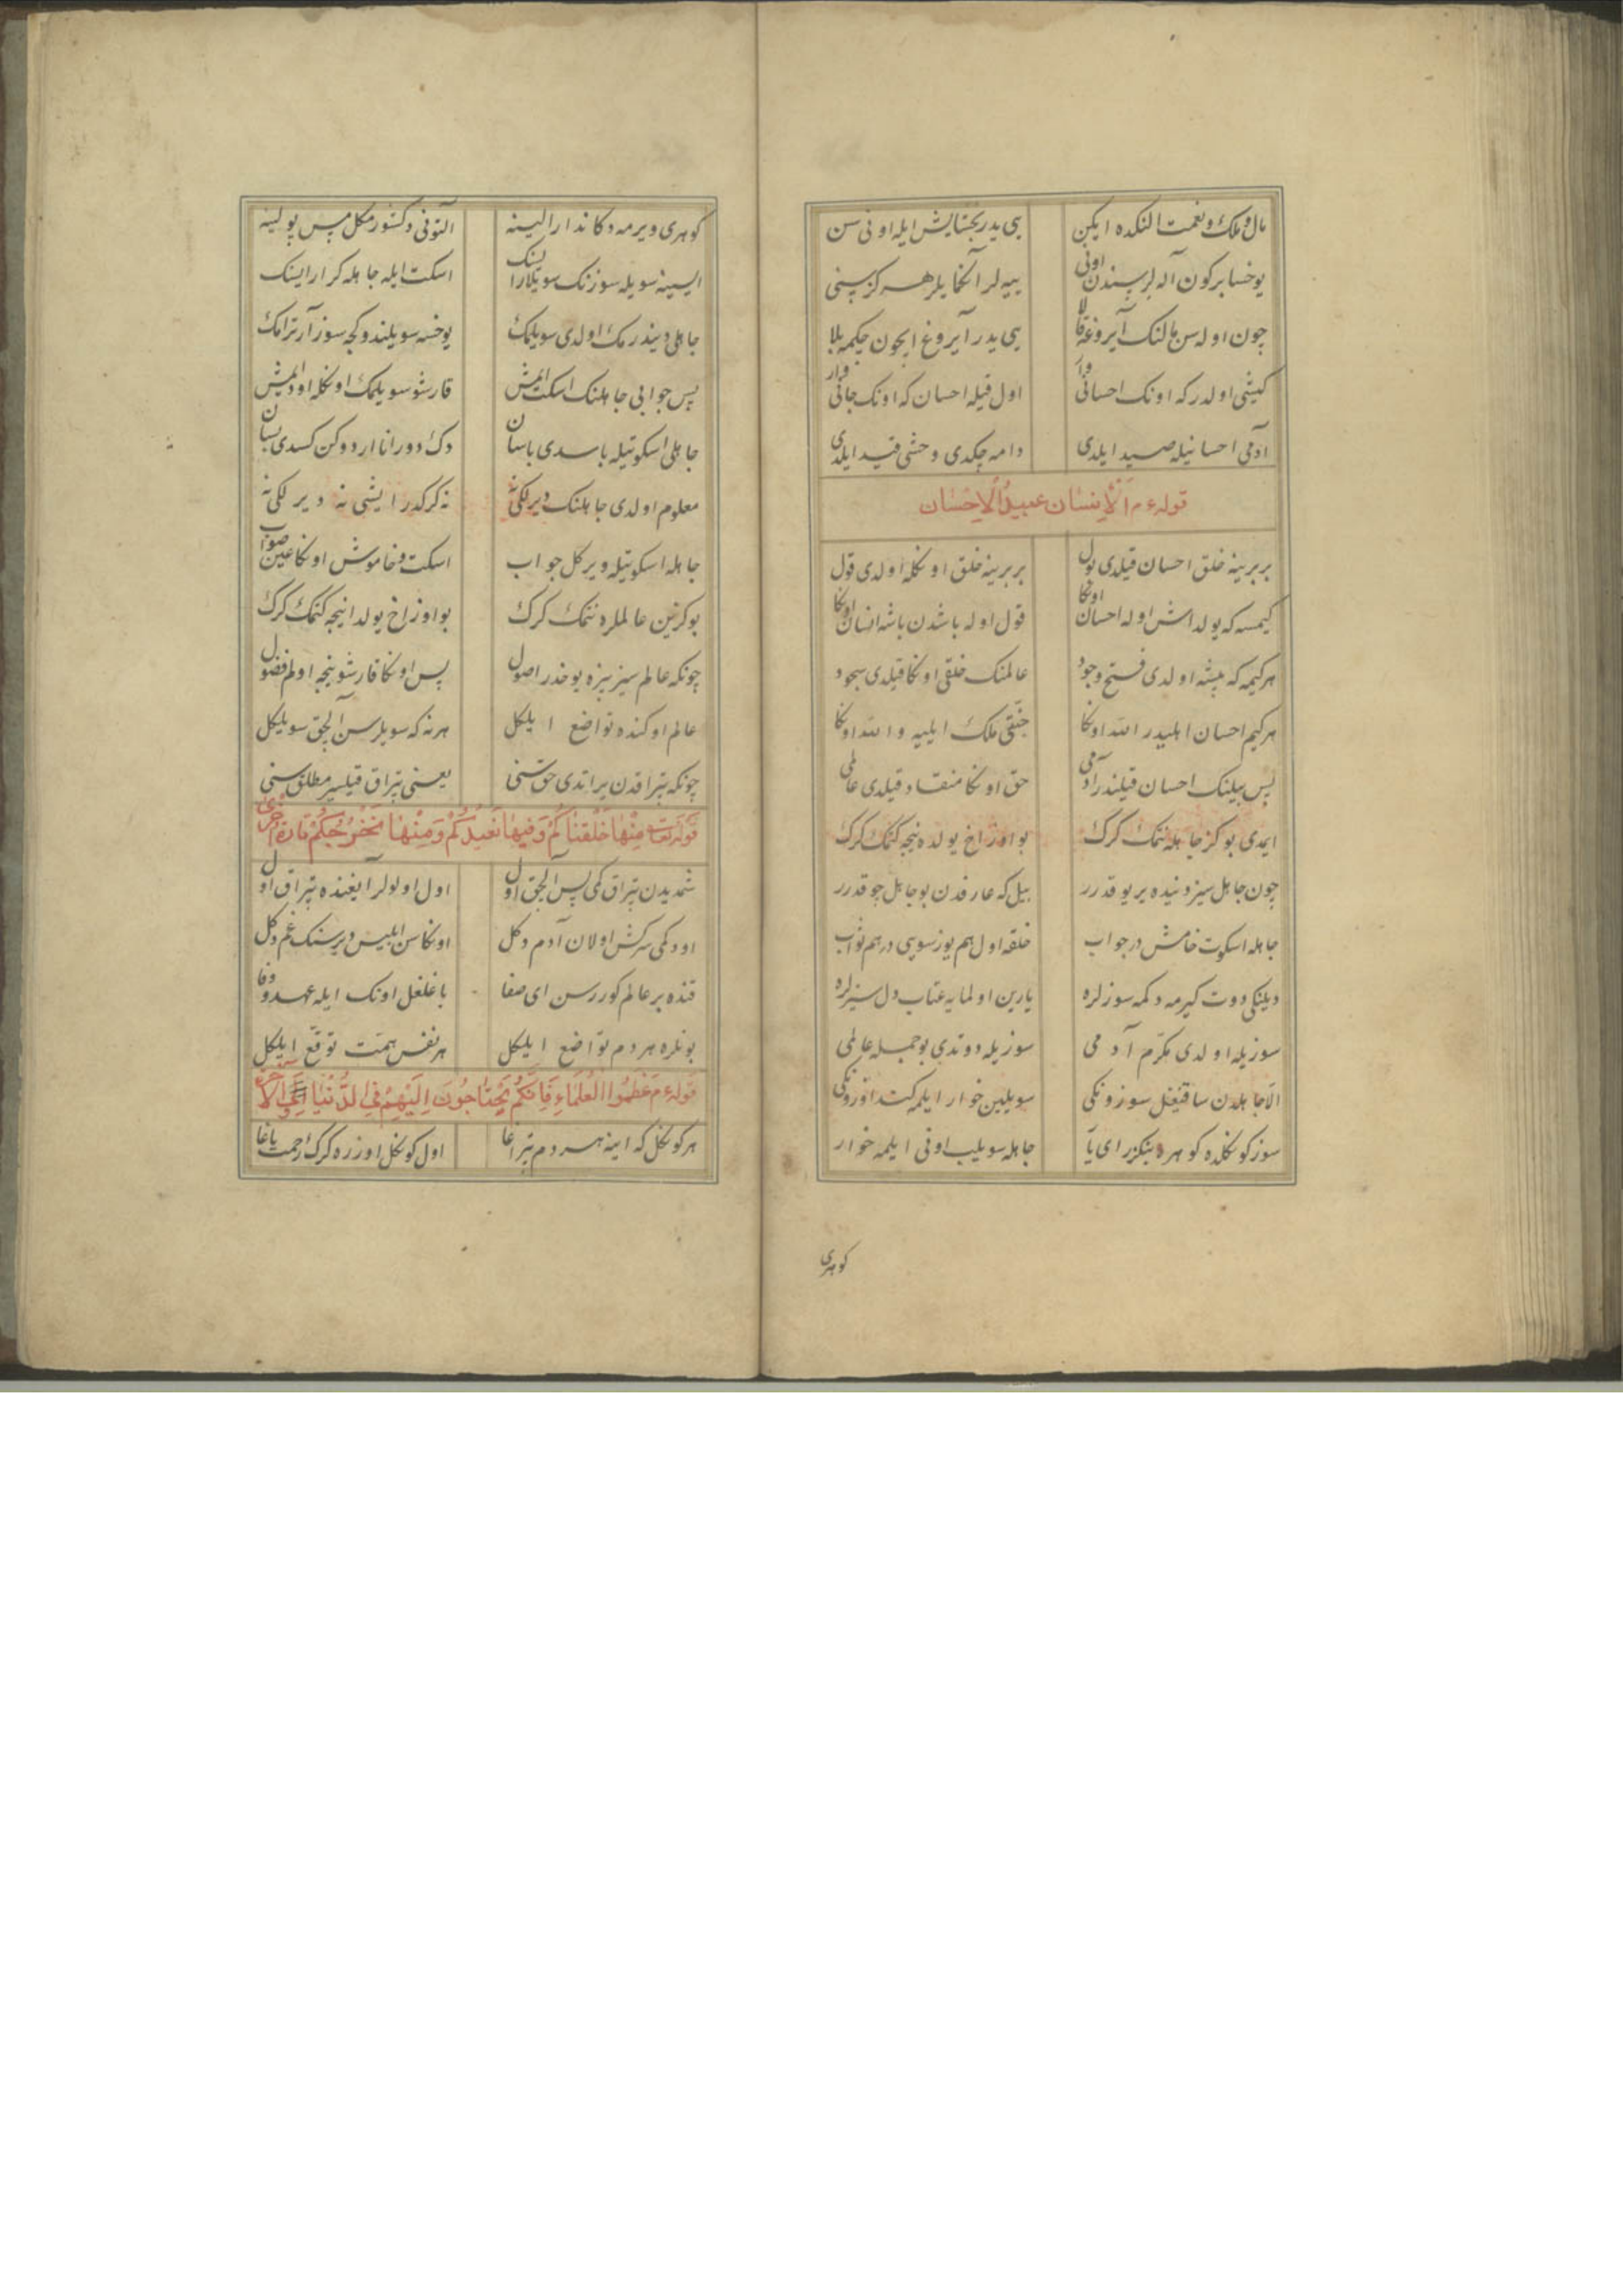 مال و ملک و نعمت النکده ایکن یی یدر بخشایش ایله اونی سن
یوخسا بر کون آله لر سندن اونی ییه لر آنکمایلر هر کز سنی
چون اوله سن مالنک آیروغه قالا یی یدر آیروغ ایچون چکمه بلا
کیشی اولدر که اونک احسانی وار اول قیله احسان که اونک جانی وار
آدمی احسانیله صید ایلدی دامه چکدی وحشی قید ایلدی
قوله ءم اَلْاِنسٰان عبیدُالْاِحْسٰان
بر برینه خلق احسان قیلدی بول بر برینه خلق اونکله اولدی قول
کیمسه که یولداش اوله احسان اونکا قول اوله باشدن باشه انسان اونکا
هر کیمه که پیشه اولدی فتح وجود عالمنک خلقی اونکا قیلدی سجود
هر کیم احسان ایلیدر الله اونکا جنتی ملک ایلیه والله اونکا
پس بیلنک احسان قیلندر آدمی حق اونکا منقاد قیلدی عالمی
ایمدی بو کز جاهله نتمک کرک بو اوزاخ یولده نیجه کتمک کرک
چون جاهل سیز دنیده یر یوقدرر بیل که عارفدن بو جاهل چوقدرر
جاهله اسکوت خامش در جواب خلقه اول هم یوز سویی در هم ثواب
دیلنکی دوت کیرمه دکمه سوزلره یارین اولمایه عتاب دل سیزلره
سوزیله اولدی مکرّم آدمی سوزیله دوتدی بو جمله عالمی
الّا جاهلدن ساقنغل سوزونکی سویلین خوار ایلمه کت اوزونکی
سوز کونکلده کوهره بنکزر ای یار جاهله سویلیب اونی ایلمه خوار
کوهری
کوهری ویرمه دکاندار الینه التونی دکشورمکل مس پولینه
ایسینه سویله سوزنک سویلارایسنک اسکت ایله جاهله کر ارایسنک
جاهلی دیندرمک اولدی سویلمک یوخسه سویلندوکجه سوز آرترامک
پس جوابی جاهلنک اسکت ایمش قارشو سویلمک اونکله اود ایمش
جاهلی اسکوتیله باسدی باسان
معلوم اولدی جاهلنک دیرلکی نه نه کرکدر ایشی نه دیرلکی نه
جاهله اسکوتیله ویرکل جواب اسکت و خاموش اونکا عین صواب
بو کرتین عالملره نتمک کرک بو اوزاخ یولدا نیجه کتمک کرک
چونکه عالم سیز بیزه یوخدر اصول پس اونکا قارشو نیجه اولم فضول
عالم اوکنده تواضع ایلکل هر نه که سویلرسن آلچق سویلکل
چونکه تپراقدن یراتدی حق تنی یعنی تپراق قیلیسر مطلق سنی
قوله تعا مِنْهٰا خَلَقْنٰا کُمْ وَ فیهٰا نُعیدُکُمْ وَ مِنْهٰا نُخْرِجُکُمْ تٰارَةً اُخْری
شمدیدن تپراق کمی پس آلچق اول اول اولولر آیغنده تپراق اول
اود کمی سرکش اولان آدم دکل اونکا سن ابلیس دیرسنک غم دکل
قنده بر عالم کوررسن ای صفا باغلغل اونک ایله عهد و وفا
بونلره هر دم تواضع ایلکل هر نفس همّت توقّع ایلکل
قوله ءم عَظِّمُوا الْعُلَمٰاءِ فَاِنَّکُمْ تَحْتٰاجُونَ اِلَیْهِمْ فِی الدُّنْیٰا وَالْاٰخِرَةِ
هر کونکل که اینه هر دم تپراغا اول کونکل اوزره کرک رحمت یاغا